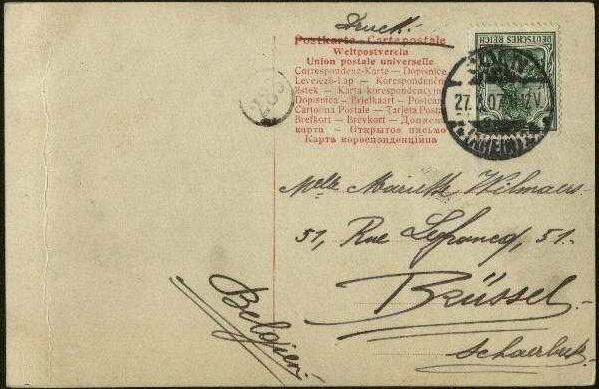 Druck.
Postkarte - Cartepostale
Weltpostverein
Union postale universelle
Correspondenz-Karte — Dopisnice
Levelező-Lap — Korespondenční
lístek — Karta korespondencyjna
Dopisnica — Briefkaart — Postcard
Cartolina Postale — Tarjeta Postal
Brefkort — Brevkort — Допиcна
карта — Открытое письмо
Карта кореспонденційна
DEUTSCHES REICH
27. 07
Melle Mariette Wilmaers.
51, Rue Lefrancq, 51.
Brüssel.
Schaerbeek.
Belgien.